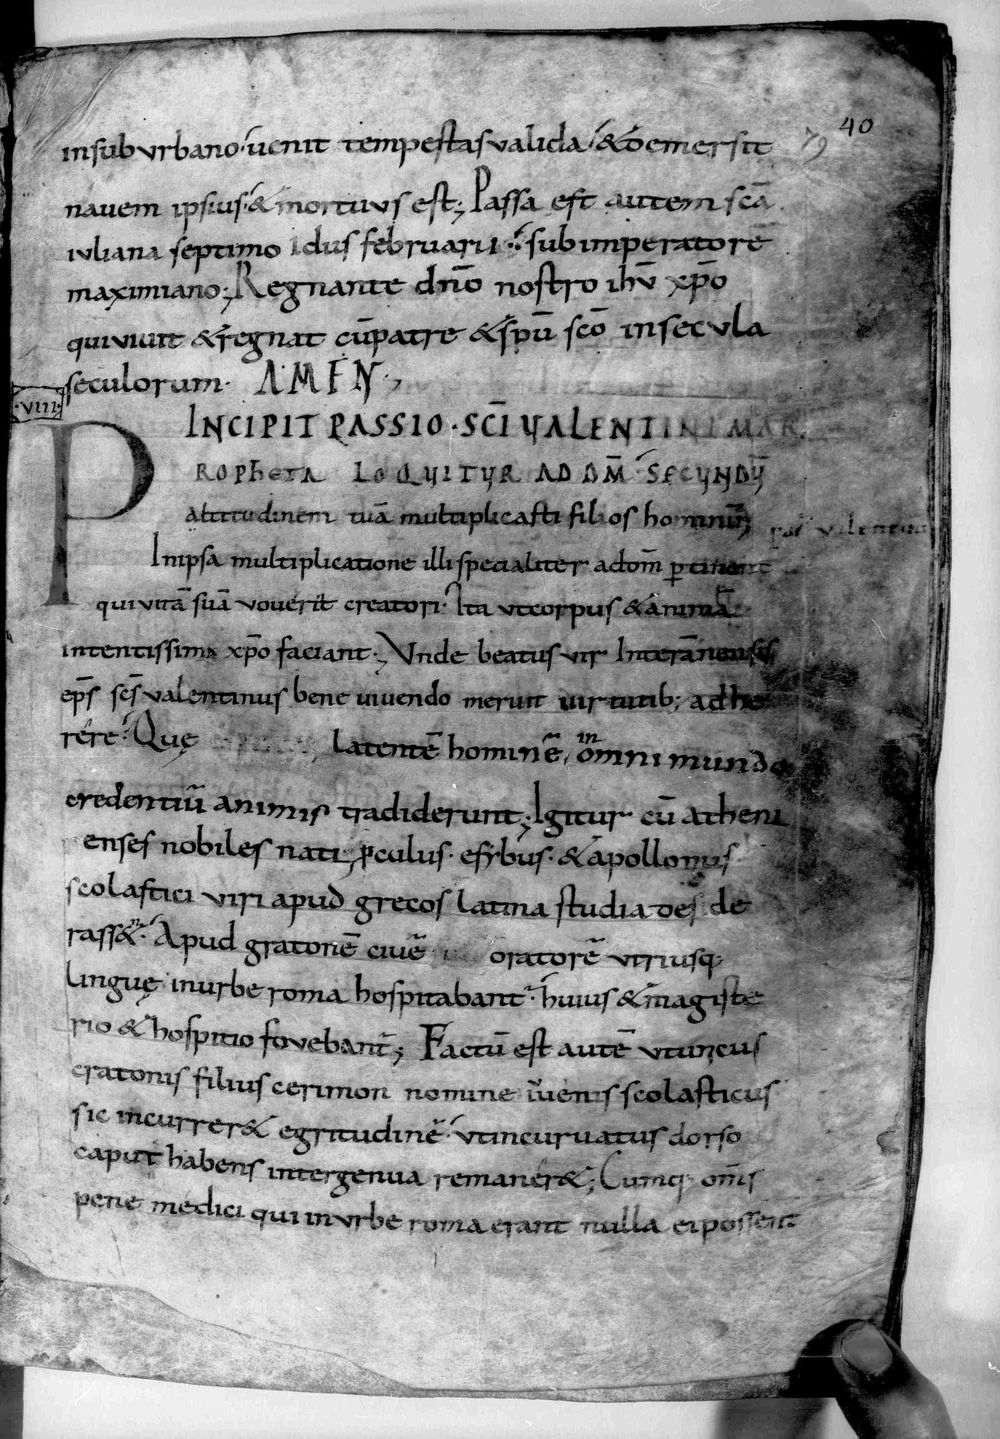 40
79
insub urbano · uenit tempestas ualida / & demersit
nauem ipsius · & mortuus est ; Passa est autem sc̄a
iuliana septimo idus februarii · sub imperatore
maximiano ; Regnante dn̄o nostro ih̄u xp̄o
qui uiuit & regnat cū patre & sp̄u sc̄o in secula
seculorum · AMEN ;
·VIIII·
INCIPIT PASSIO · SC̄I VALENTINI MAR
PROPHETA LOQUITUR AD DM̄ · SECUNDŪ
altitudinem tuā multiplicasti filios hominū ;
In ipsa multiplicatione illi specialiter ad dom̄ pertinent
qui uitā suā uouerit creatori · Ita ut corpus & animā
intentissima xp̄o faciant ; Unde beatus uir Interānensis
ep̄s sc̄s ualentinus bene uiuendo meruit uirtutib ; adhe
rere · Quę latentē hominē in omni mundo
credentiū animis tradiderunt ; Igitur cū atheni
enses nobiles nati ; p̄culus · efybus · & apollonius
scolastici uiri apud grecos latina studia deside
rass& · Apud gratonē ciuē oratorē utriusq ·
linguę in urbe roma hospitabant · huius & magiste
rio & hospitio fouebant ; Factū est autē ut unicus
cratonis filius cerimon nomine iuuenis scolasticus
sic incurrer& egritudinē · ut incuruatus dorso
caput habens inter genua remaner& ; Cumq · om̄s
pene medici qui in urbe roma erant nulla ei possent